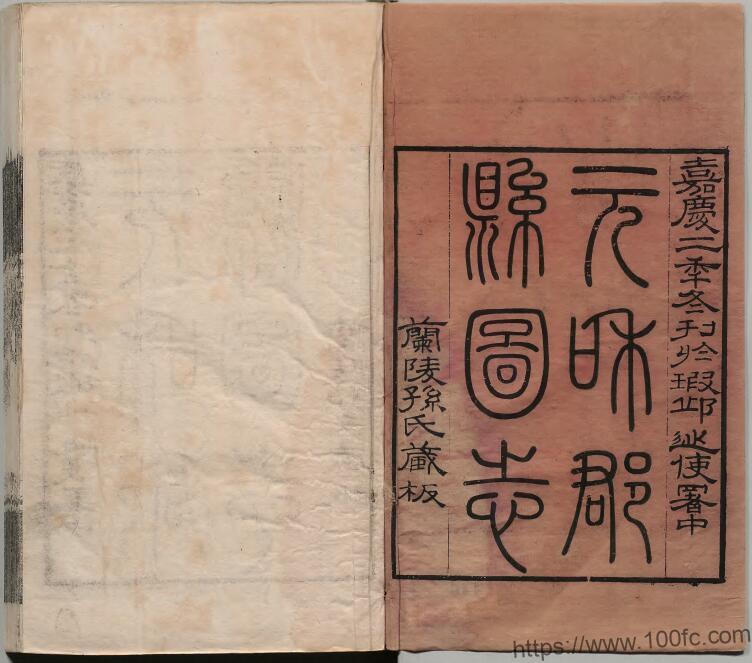 嘉慶二秊冬刊於瑕邱巡使署中
元和郡
縣圖志
蘭陵孫氏藏板
https://www.100fc.com